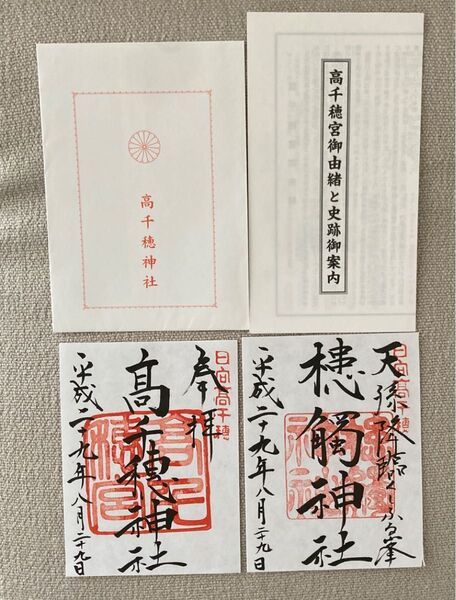 高千穂神社
高千穂宮御由緒と史跡御案内
日向高千穂
奉拝
高千穂神社
平成二十九年八月二十九日
日向高千穂
天孫降臨くしふる峯
槵觸神社
平成二十九年八月二十九日